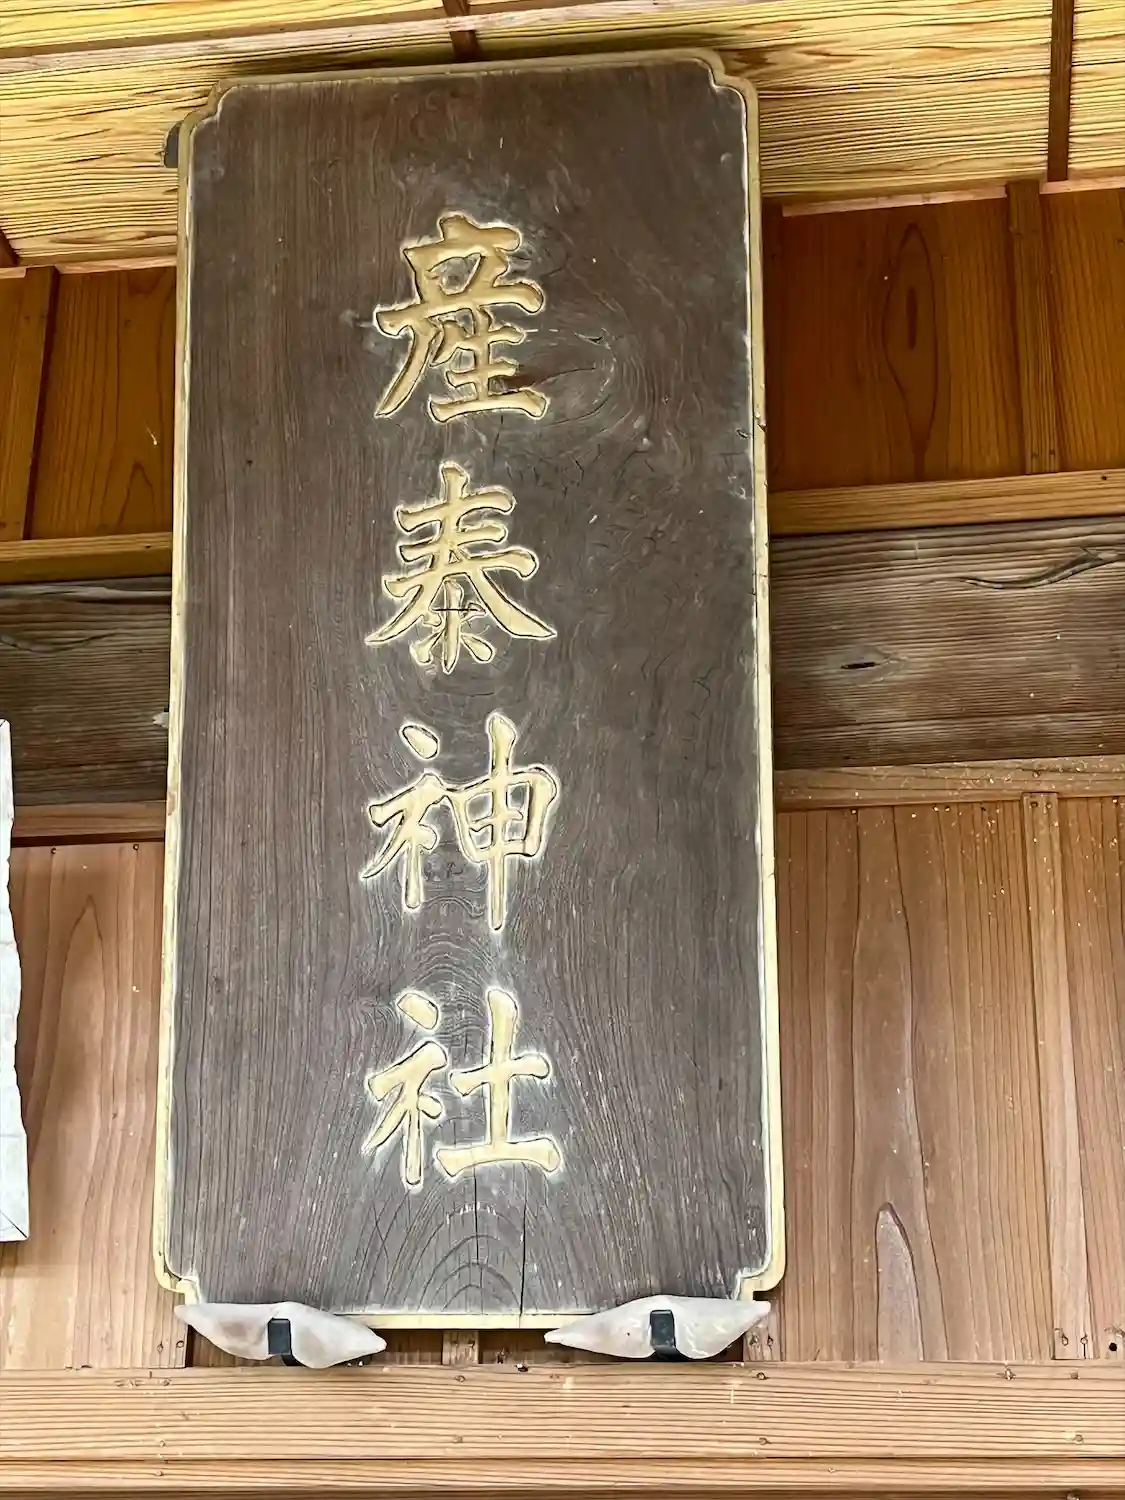 産泰神社